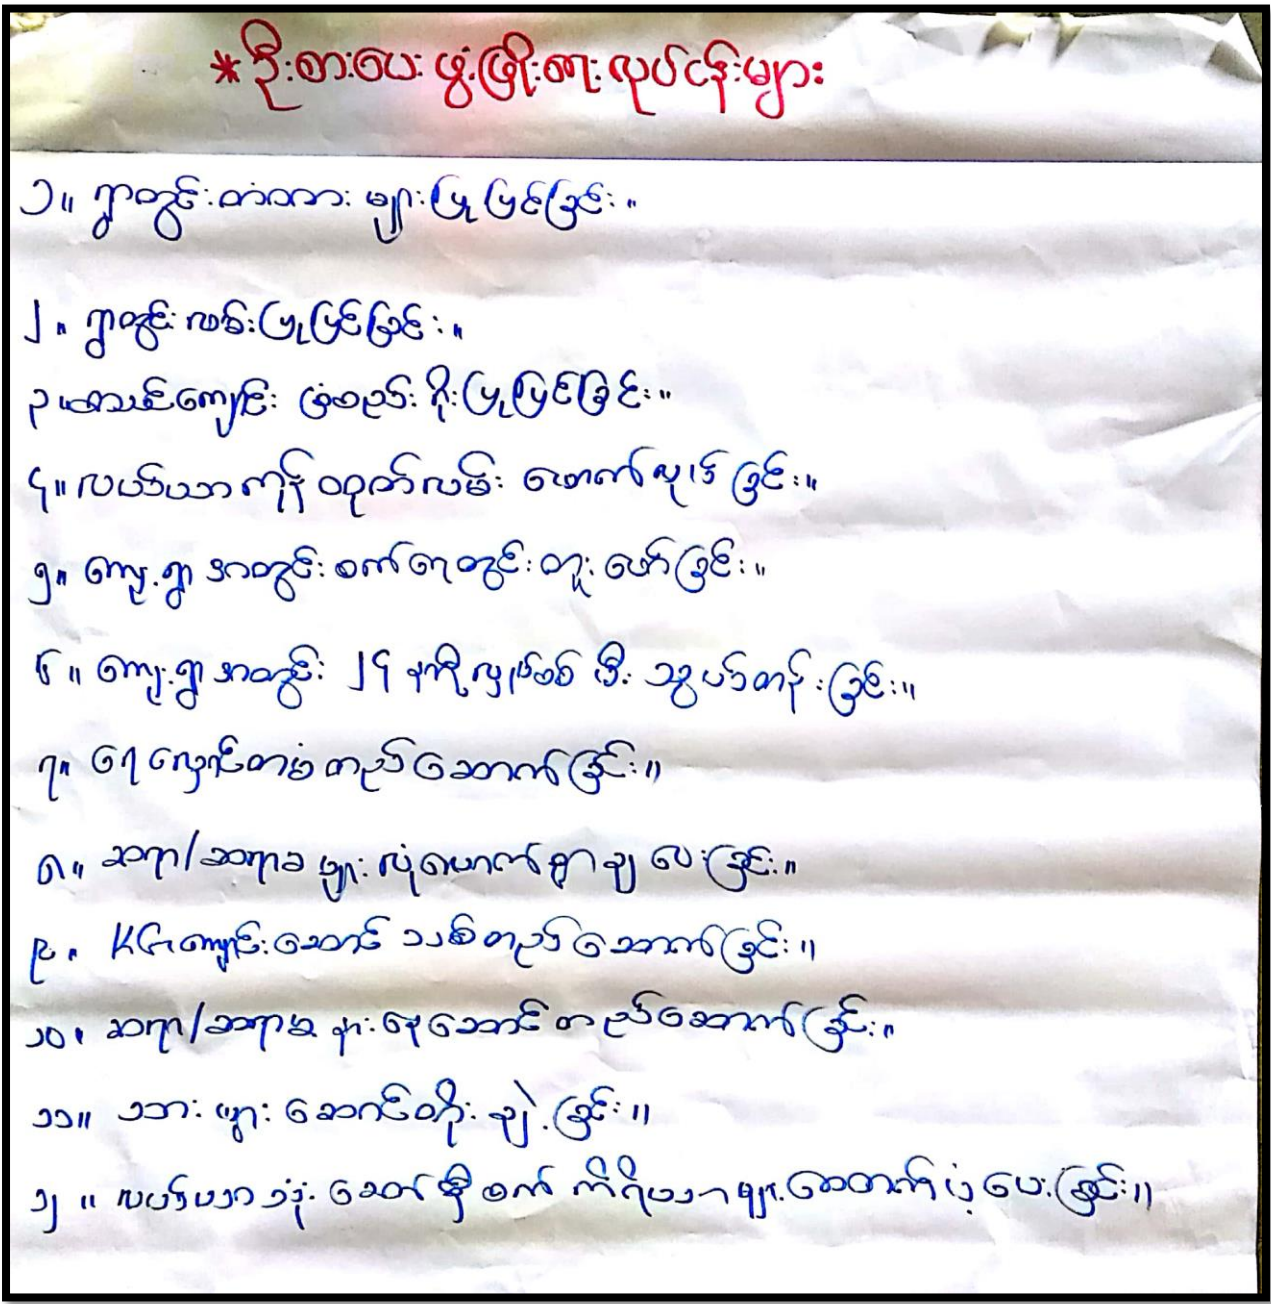 *ဦးစားပေး ဖွံ့ဖြိုးရေး လုပ်ငန်းများ
၁။ ရွာတွင်းတံတား များပြုပြင်ခြင်း။
၂။ ရွာတွင်း လမ်းပြုပြင်ခြင်း။
၃။ စာသင်ကျောင်း ခြံစည်းရိုးပြုပြင်ခြင်း။
၄။ လယ်ယာကုန် ထုတ်လမ်း ဖောက်လုပ်ခြင်း။
၅။ ကျေးရွာ အတွင်း စက်ရေတွင်း တူးဖော်ခြင်း။
၆။ ကျေးရွာအတွင်း ၂၄ နာရီလျှပ်စစ် မီး သွယ်တန်းခြင်း။
၇။ ရေလှောင်တမံ တည်ဆောက်ခြင်း။
၈။ ဆရာ/ဆရာမ များ လုံလောက်စွာ ချပေးခြင်း။
၉။ KG ကျောင်းဆောင် သစ်တည်ဆောက်ခြင်း။
၁၀။ ဆရာ/ဆရာမ နားနေဆောင် တည်ဆောက်ခြင်း။
၁၁။ သားဖွား ဆောင်တိုးချဲ့ခြင်း။
၁၂။ လယ်ယာသုံး ခေတ်မှီ စက် ကိရိယာများ ထောက်ပံ့ပေးခြင်း။